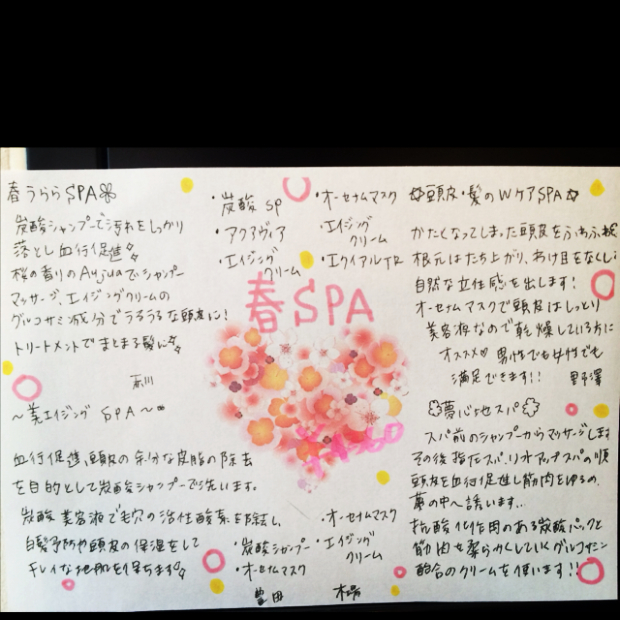 春うららSPA
炭酸シャンプーで汚れをしっかり
落とし血行促進
桜の香りのAujuaでシャンプー
マッサージ、エイジングクリームの
グルコサミン成分でうるうるな頭皮に!
トリートメントでまとまる髪に
・炭酸SP
・アクアヴィア
・エイジング
クリーム
・オーセナムマスク
・エイジング
クリーム
・エクイアルTR
頭皮・髪のWケアSPA
かたくなってしまった頭皮をふわふわ
根元はたち上がり、わけ目をなくし
自然な立体感を出します!
オーセナムマスクで頭皮はしっとり
美容液なので乾燥している方に
オススメ♡ 男性でも女性でも
満足できます!! 野澤
春SPA
~美エイジング SPA~
血行促進、頭皮の余分な皮脂の除去
を目的として炭酸シャンプーで洗います。
炭酸美容液で毛穴の活性酸素を除去し、
白髪予防や頭皮の保湿をして
キレイな地肌を保ちます
・炭酸シャンプー
・オーセナムマスク
・オーセナムマスク
・エイジング
クリーム
豊田
夢心地スパ
スパ前のシャンプーからマッサージします
その後指圧スパ、リフトアップスパの順
頭皮を血行促進し筋肉をゆるめ、
夢の中へ誘います...
抗酸化作用のある炭酸パックと
筋肉を柔らかくしていくグルコサミン
配合のクリームを使います!!